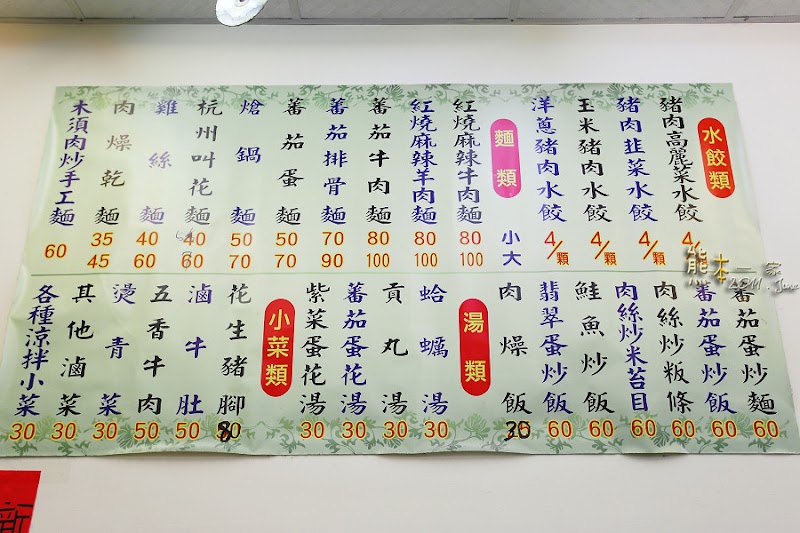 水餃類
豬肉高麗菜水餃 4/
豬肉韭菜水餃 4/顆
玉米豬肉水餃 4/顆
洋蔥豬肉水餃 4/顆
麵類 小 大
紅燒麻辣牛肉麵 80 100
紅燒麻辣羊肉麵 80 100
蕃茄牛肉麵 80 100
蕃茄排骨麵 70 90
蕃茄蛋麵 50 70
熗鍋麵 50 70
杭州叫花麵 40 60
雞絲麵 40 60
肉燥乾麵 35 45
木須肉炒手工麵 60
蕃茄蛋炒麵 60
蕃茄蛋炒飯 60
肉絲炒粄條 60
肉絲炒米苔目 60
鮭魚炒飯 60
翡翠蛋炒飯 60
肉燥飯
湯類
蛤蠣湯 30
貢丸湯 30
蕃茄蛋花湯 30
紫菜蛋花湯 30
小菜類
花生豬腳 80
滷牛肚 50
五香牛肉 50
燙青菜 30
其他滷菜 30
各種涼拌小菜 30
熊本一家
2011. June